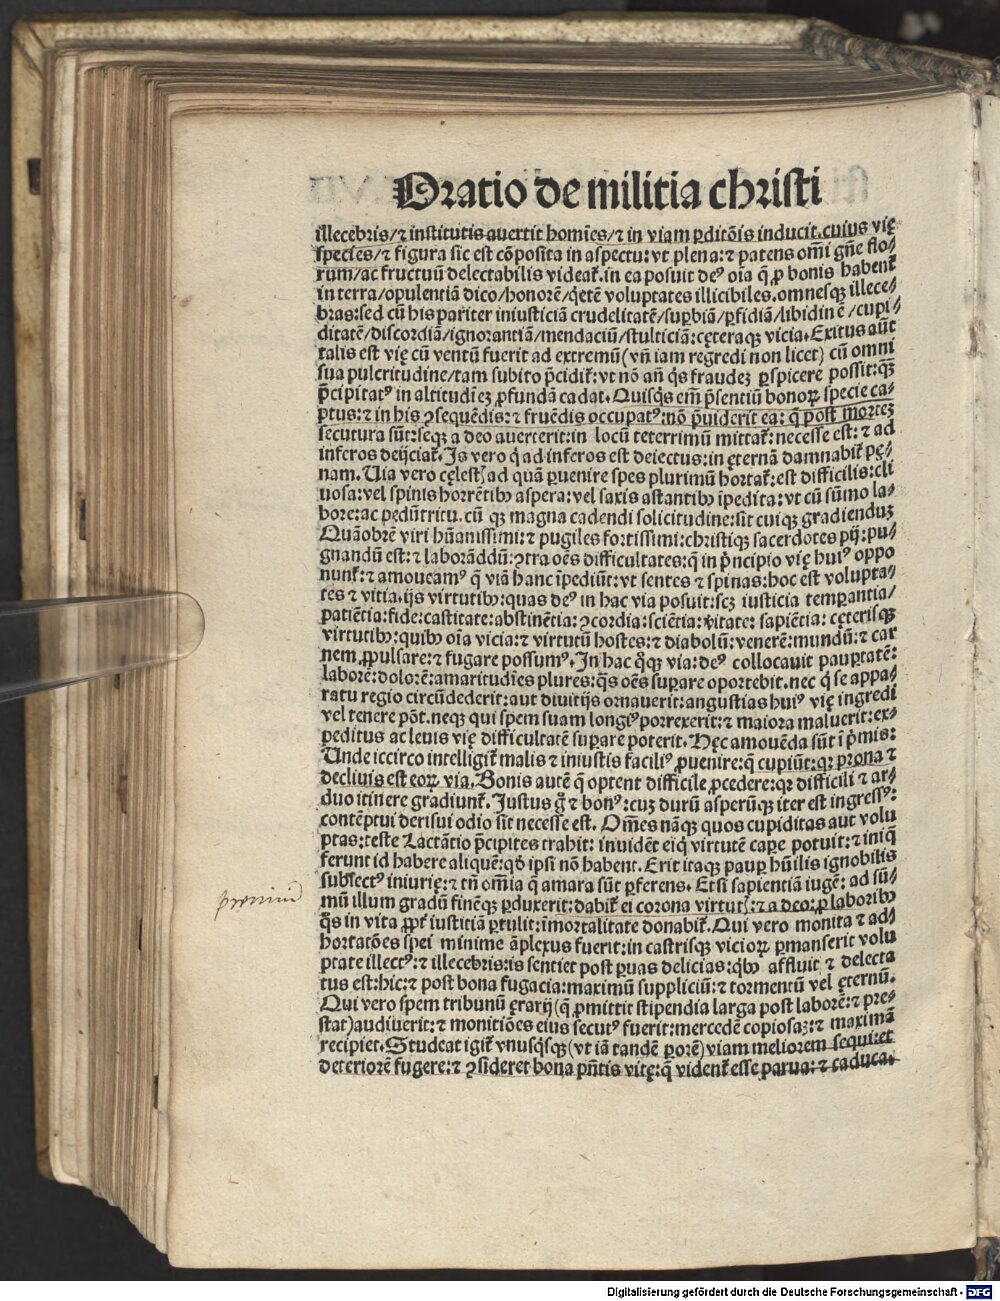 Oratio de militia christi
illecebris/⁊ institutis auertit homīes/⁊ in viam ꝑditōis inducit.cuius vię
species/⁊ figura sic est cōposita in aspectu:vt plena:⁊ patens om̄i gn̄e flo⸗
rum/ac fructuū delectabilis videat̄.in ea posuit deꝰ oīa q̄ ꝓ bonis habent̄
in terra/opulentiā dico/honorē/q̇etē voluptates illicibiles.omnesqꝫ illece⸗
bras:sed cū his pariter iniusticiā crudelitatē/suꝑbiā/ꝑfidiā/libidinē/cupi⸗
ditatē/discordiā/ignorantiā/mendaciū/stulticiā:cęteraqꝫ vicia.Exitus aūt
talis est vię cū ventū fuerit ad extremū(vn̄ iam regredi non licet) cū omni
sua pulcritudine/tam subito p̄cidit̄:vt nō an̄ q̇s fraudeꝫ ꝑspicere possit:qꝫ̄
p̄cipitatꝰ in altitudīeꝫ ꝓfundā cadat.Quisq̇s em̄ p̄sentiū bonoꝝ specie ca⸗
ptus:⁊ in his ꝯsequēdis:⁊ fruēdis occupatꝰ:nō p̄uiderit ea: q̄ post morteꝫ
secutura sūt:seqꝫ a deo auerterit:in locū teterrimū mittat̄:necesse est:⁊ ad
inferos deijciat̄.Is vero q̇ ad inferos est deiectus:in ęternā damnabit̄ pę⸗
nam.Uia vero cęlestꝭ ad quā ꝑuenire spes plurimū hortat̄:est difficilis:cli
uosa:vel spinis horrētibꝫ aspera:vel saxis astantibꝫ īpedita:vt cū sūmo la⸗
bore:ac pedūtritu.cū qꝫ magna cadendi solicitudine:sit cuiqꝫ gradienduꝫ
Quāobrē viri hūanissimi:⁊ pugiles fortissimi:christiqꝫ sacerdotes pij:pu⸗
gnandū est:⁊ laborāddū:ꝯtra oēs difficultates:q̄ in p̄ncipio vię huiꝰ oppo
nunt̄:⁊ amoueamꝰ q̄ viā hanc īpediūt:vt sentes ⁊ spinas:hoc est volupta⸗
tes ⁊ vitia.ijs virtutibꝫ:quas deꝰ in hac via posuit:scꝫ iusticia temꝑantia/
patiētia:fide:castitate:abstinētia:ꝯcordia:sciētia:v̇itate: sapiētia: cęterisqꝫ
virtutibꝫ:quibꝫ oīa vicia:⁊ virtutū hostes:⁊ diabolū:venerē:mundū:⁊ car
nem ꝓpulsare:⁊ fugare possumꝰ.In hac q̊qꝫ via:deꝰ collocauit pauꝑtatē:
laborē:dolorē:amaritudīes plures:q̇s oēs suꝑare oportebit.nec q̇ se appa⸗
ratu regio circūdederit:aut diuitijs ornauerit:angustias huiꝰ vię ingredi
vel tenere pōt.neqꝫ qui spem suam longiꝰ porrexerit:⁊ maiora maluerit:ex⸗
peditus ac leuis vię difficultatē suꝑare poterit.Hęc amouēda sūt ī p̄mis:
Unde iccirco intelligit̄ malis ⁊ iniustis faciliꝰ ꝓuenire:q̄ cupiūt:qꝛ prona ⁊
decliuis est eoꝝ via.Bonis autē q̄ optent difficile ꝓcedere:qꝛ difficili ⁊ ar⸗
duo itinere gradiunt̄.Iustus g̊ ⁊ bonꝰ:cuꝫ durū asperūqꝫ iter est ingressꝰ:
contēptui derisui odio sit necesse est. Om̄es nāqꝫ quos cupiditas aut volu
ptas:teste Lactātio p̄cipites trahit: inuidēt ei:q̇ virtutē caꝑe potuit:⁊ iniq̄
ferunt id habere aliquē:qd̄ ipsi nō habent.Erit itaqꝫ pauꝑ hūilis ignobilis
subiectꝰ iniurię:⁊ tn̄ om̄ia q̄ amara sūt ꝑferens. Etsi sapientiā iugē: ad sū⸗
mū illum gradū finēqꝫ ꝑduxerit:dabit̄ ei corona virtutꝭ:⁊ a deo:ꝓ laboribꝫ
q̇s in vita ꝓpt̄ iustitiā ꝑtulit:īmortalitate donabit̄.Qui vero monita ⁊ ad⸗
hortatōes spei minime āplexus fuerit:in castrisqꝫ vicioꝝ ꝑmanserit volu
ptate illectꝰ:⁊ illecebris:is sentiet post ꝑuas delicias:q̇bꝫ affluit ⁊ delecta
tus est:hic:⁊ post bona fugacia:maximū suppliciū:⁊ tormentū vel ęternū.
Qui vero spem tribunū ęrarij(q̄ ꝓmittit stipendia larga post laborē:⁊ pre⸗
stat)audiuerit:⁊ monitiōes eius secutꝰ fuerit:mercedē copiosaꝫ:⁊ maximā
recipiet.Studeat igit̄ vnusq̇sqꝫ(vt iā tandē ꝑorē)viam meliorem sequi:et
deteriorē fugere:⁊ ꝯsideret bona pn̄tis vitę:q̄ vident̄ esse parua:⁊ caduca.
Digitalisierung gefördert durch die Deutsche Forschungsgemeinschaft - DFG